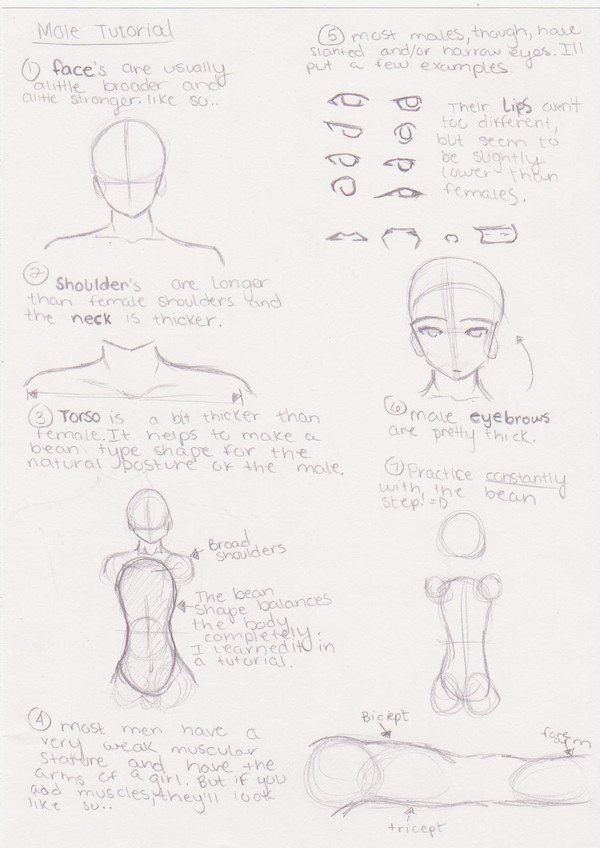 Male Tutorial
① face's are usually
a little broader and
a little stronger. like so..
② Shoulder's are longer
than female shoulders and
the neck is thicker.
③ Torso is a bit thicker than
female. It helps to make a
bean type shape for the
natural posture of the male.
Broad
shoulders
The bean
shape balances
the body
completely.
I learned it in
a tutorial.
④ most men have a
very weak muscular
stature and have the
arms of a girl. But if you
add muscles, they'll look
like so..
⑤ most males, though, have
slanted and/or narrow eyes. I'll
put a few examples.
Their Lips aren't
too different,
but seem to
be slightly
lower than
females.
⑥ male eyebrows
are pretty thick.
⑦ Practice constantly
with the bean
step! =D
Bicept
fore
arm
tricept